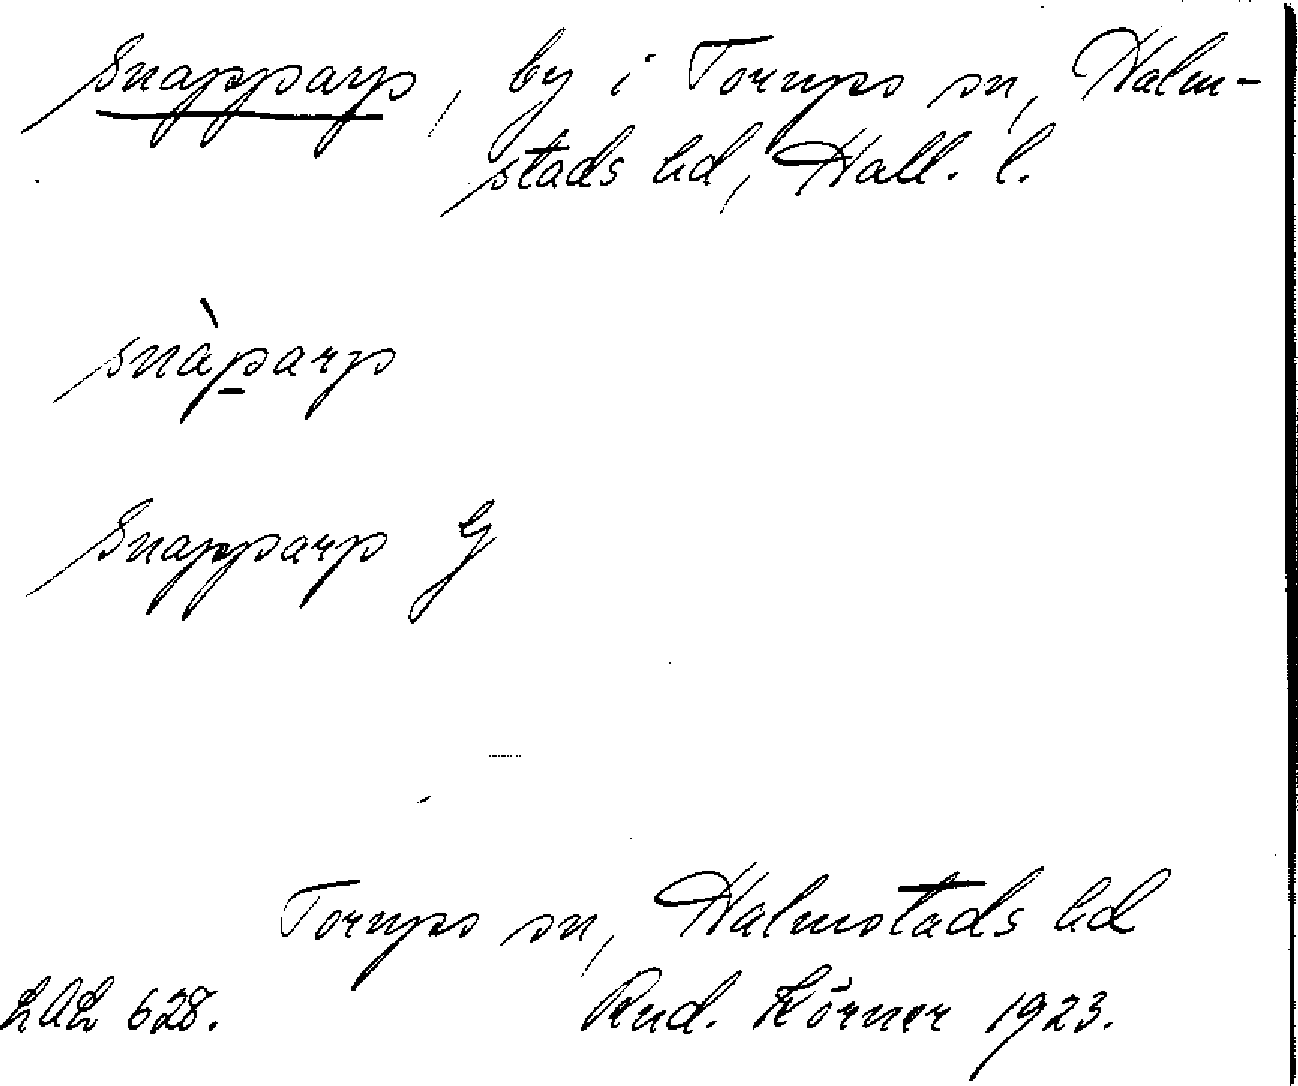 Snapparp, by i Torups sn, Halm-
stads hd, Hall. l.
snàp̲arp
Snapparp G
Torups sn, Halmstads hd
LAL 628. Rud. Körner 1923.